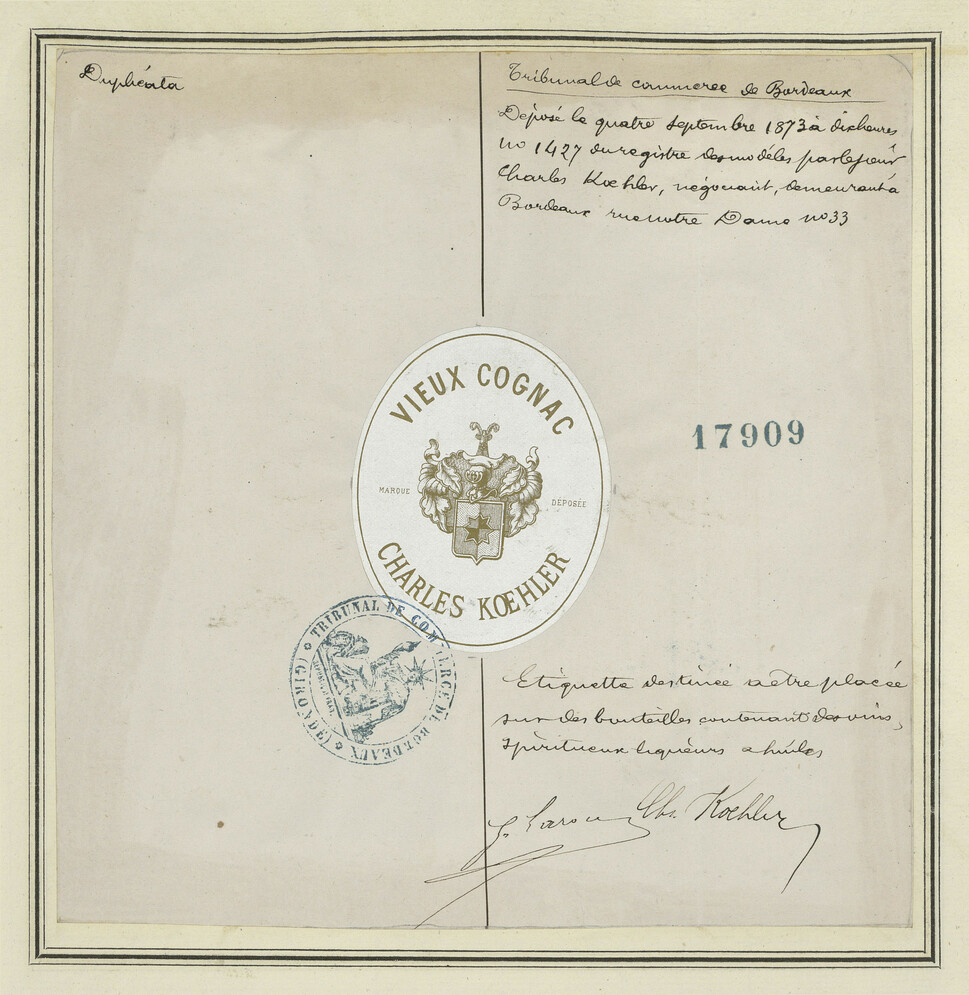 Duplicata
Tribunal de commerce de Bordeaux
Déposé le quatre septembre 1873 à dix heures
no 1427 du registre des modèles par le sieur
Charles Koehler, négociant, demeurant à
Bordeaux rue notre Dame no 33
VIEUX COGNAC
MARQUE DÉPOSÉE
CHARLES KŒHLER
17909
TRIBUNAL DE COMMERCE DE BORDEAUX
(GIRONDE)
Etiquette destinée à être placée
sur des bouteilles contenant des vins,
spiritueux liqueurs & huiles
Chs. Koehler